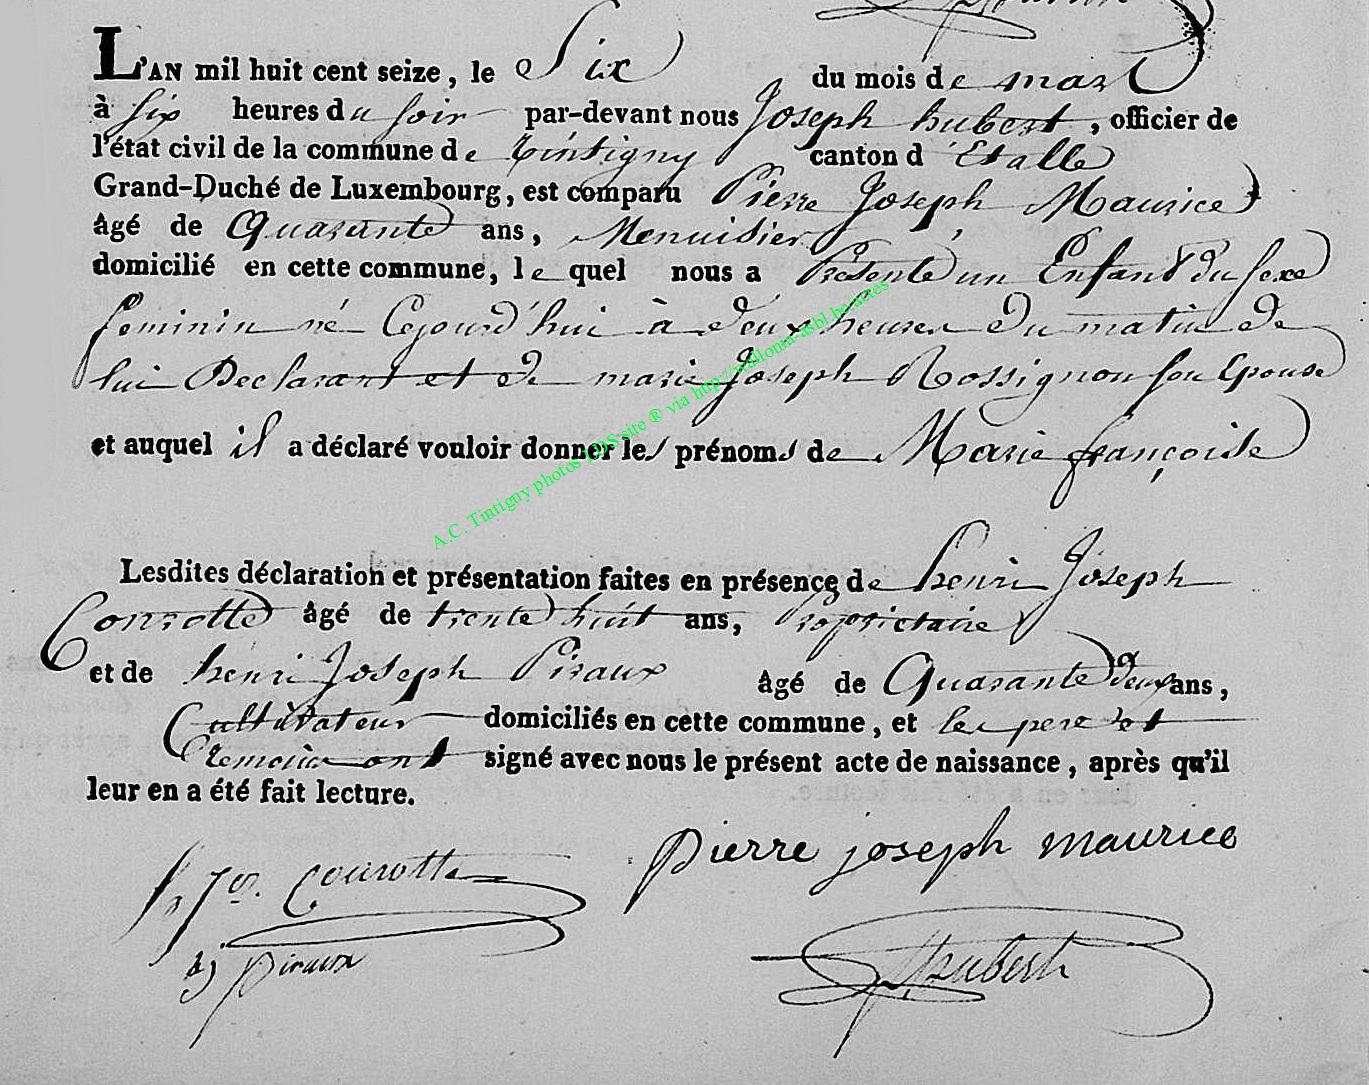 L'AN mil huit cent seize, le Six du mois de mars
à six heures du soir par-devant nous Joseph hubert, officier de
l'état civil de la commune de tintigny canton d'Etalle
Grand-Duché de Luxembourg, est comparu Pierre Joseph Maurice
âgé de Quarante ans, Menuisier
domicilié en cette commune, le quel nous a Presenté un Enfant du sexe
feminin né Cejourd'hui à deux heures du matin de
lui Declarant et de marie Joseph Rossignon son Epouse
et auquel il a déclaré vouloir donner les prénoms de Marie françoise
Lesdites déclaration et présentation faites en présence de henri Joseph
Conrotte âgé de trente huit ans, Proprietaire
et de henri Joseph Piraux âgé de Quarante deux ans,
Cultivateur domiciliés en cette commune, et les pere et
temoins ont signé avec nous le présent acte de naissance, après qu'il
leur en a été fait lecture.
pierre joseph maurice
h Jos. Conrotte
hj piraux
Hubert
A.C. Tintigny photos LDS site ® via http://wallonia-asbl.be/actes